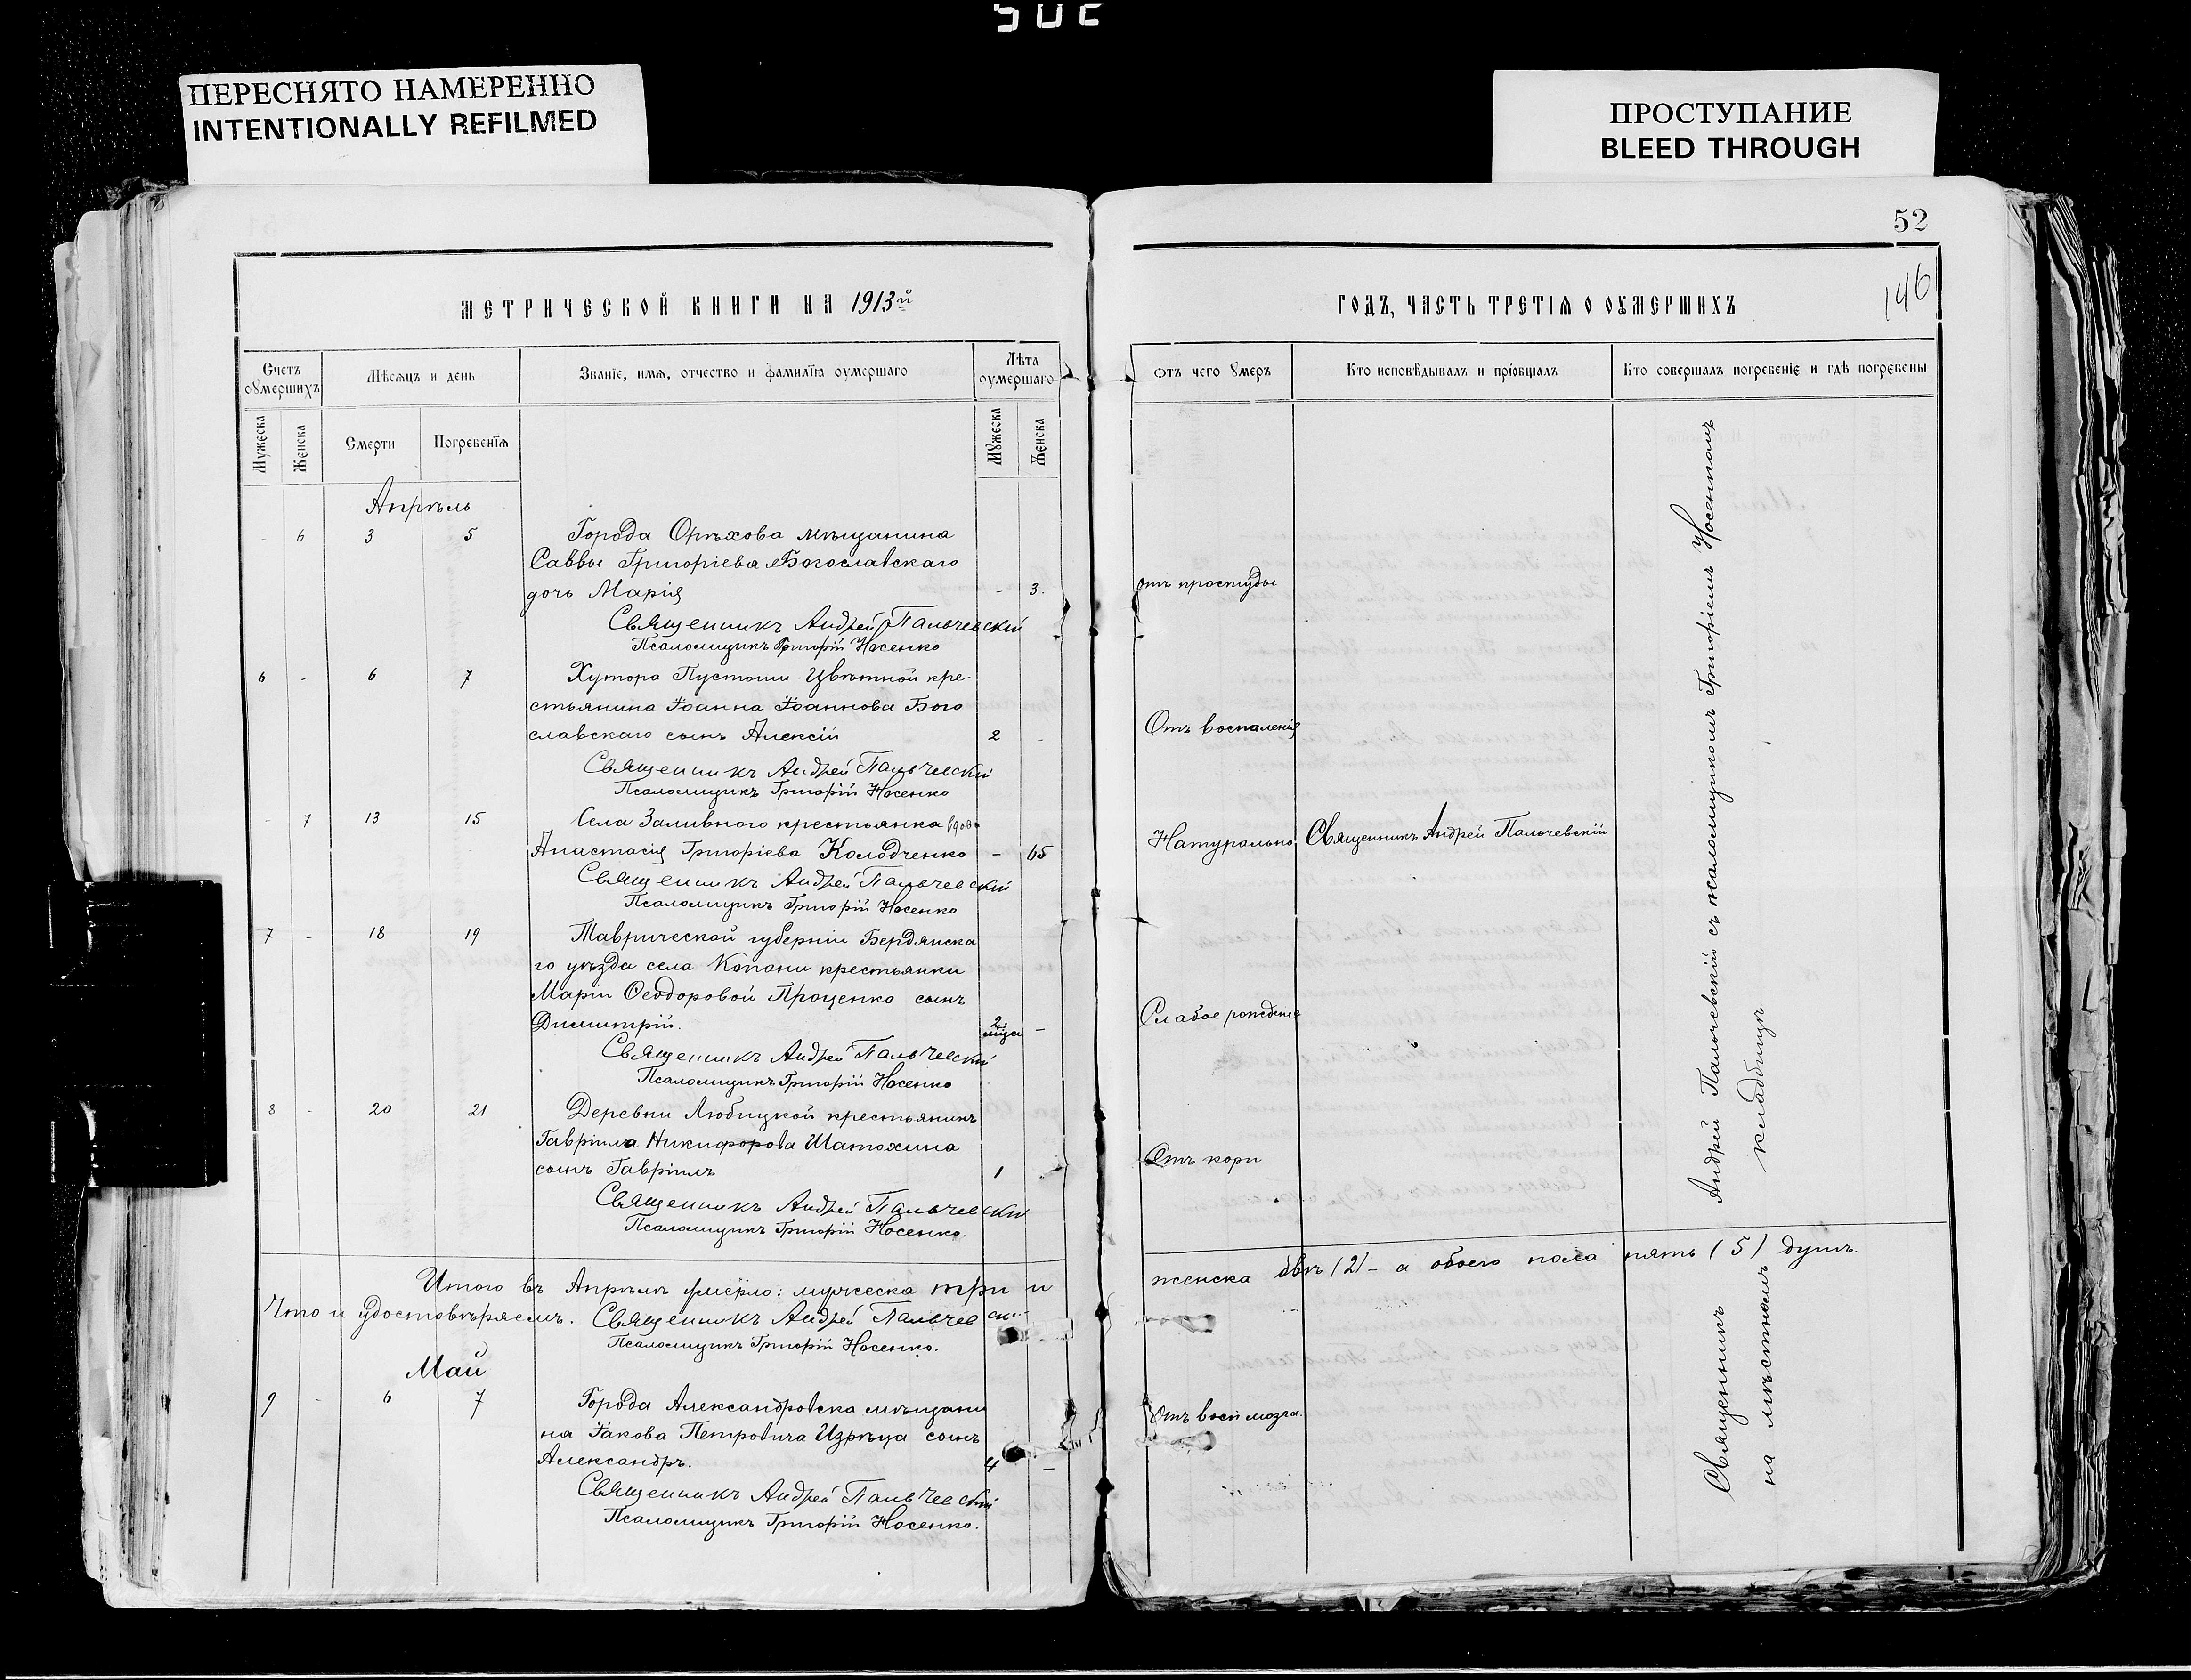 ПЕРЕСНЯТО НАМЕРЕННО
INTENTIONALLY REFILMED
ПРОСТУПАНИЕ
BLEED THROUGH
52
146
МЕТРИЧЕСКОЙ КНИГИ НА 1913й
ГОДЪ, ЧАСТЬ ТРЕТІЯ О ОУМЕРШИХЪ
Счетъ оумершихъ
Мѣсяцъ и день
Званіе, имя, отчество и фамилія оумершаго
Лѣта оумершаго
Отъ чего умеръ
Кто исповѣдывалъ и пріобщалъ
Кто совершалъ погребеніе и гдѣ погребены
Мужеска
Женска
Смерти
Погребенія
Мужеска
Женска
Апрѣль
- 6 3 5 Города Орѣхова мѣщанина
Саввы Григоріева Богославскаго
дочь Марія - 3. отъ простуды
Священникъ Андрей Пальчевскій
Псаломщикъ Григорій Носенко
6 - 6 7 Хутора Пустоши Цвѣтной кре-
стьянина Іоанна Іоаннова Бого
славскаго сынъ Алексій 2 - Отъ воспаленія
Священникъ Андрей Пальчевскій
Псаломщикъ Григорій Носенко
- 7 13 15 Села Заливного крестьянка вдова
Анастасія Григоріева Колодченко - 65 Натурально Священникъ Андрей Пальчевскій
Священникъ Андрей Пальчевскій
Псаломщикъ Григорій Носенко
7 - 18 19 Таврической губерніи Бердянска
го уѣзда села Копани крестьянки
Маріи Ѳеодоровой Проценко сынъ
Димитрій. 2 мца - Слабое рожденіе
Священникъ Андрей Пальчевскій
Псаломщикъ Григорій Носенко
8 - 20 21 Деревни Любицкой крестьянинъ
Гавріила Никифорова Шатохина
сынъ Гавріилъ 1 - Отъ кори
Священникъ Андрей Пальчевскій
Псаломщикъ Григорій Носенко.
Итого въ Апрѣлѣ умерло: мужеска три и женска двѣ (2) - а обоего пола пять (5) душъ.
Что и удостовѣряемъ. Священникъ Андрей Пальчевскій
Псаломщикъ Григорій Носенко.
Май
9 - 6 7 Города Александровска мѣщани
на Іакова Петровича Изрѣца сынъ
Александръ. 4 - Отъ восп мозга.
Священникъ Андрей Пальчевскій
Псаломщикъ Григорій Носенко.
Священникъ Андрей Пальчевскій съ псаломщикомъ Григоріемъ Носенкомъ
на мѣстномъ кладбищѣ